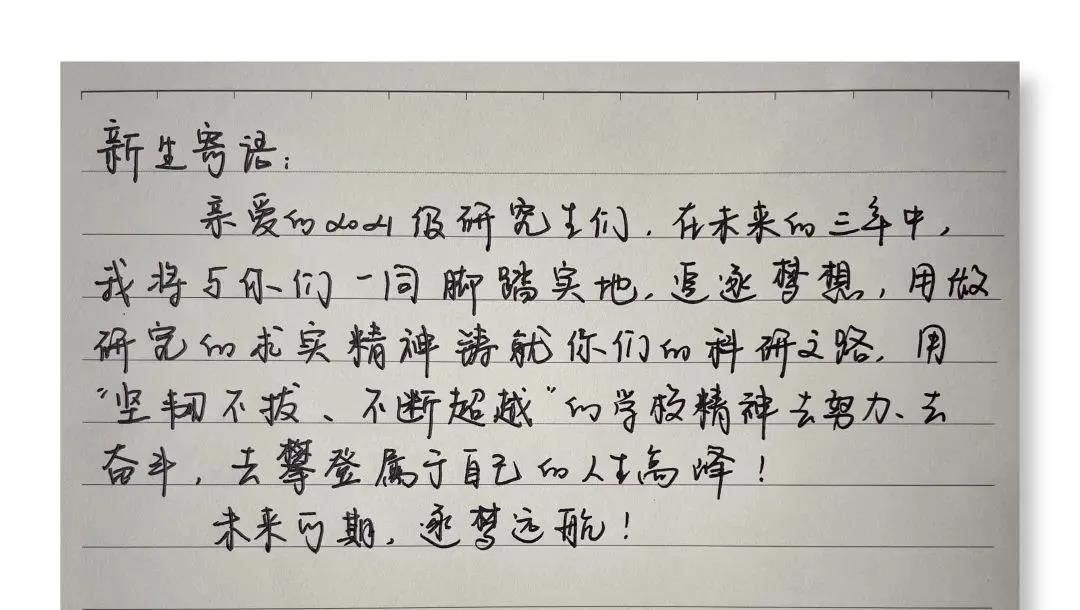 新生寄语：
亲爱的2021级研究生们，在未来的三年中，
我将与你们一同脚踏实地，追逐梦想，用做
研究的求实精神铸就你们的科研之路，用
“坚韧不拔、不断超越”的学校精神去努力、去
奋斗，去攀登属于自己的人生高峰！
未来可期，逐梦远航！